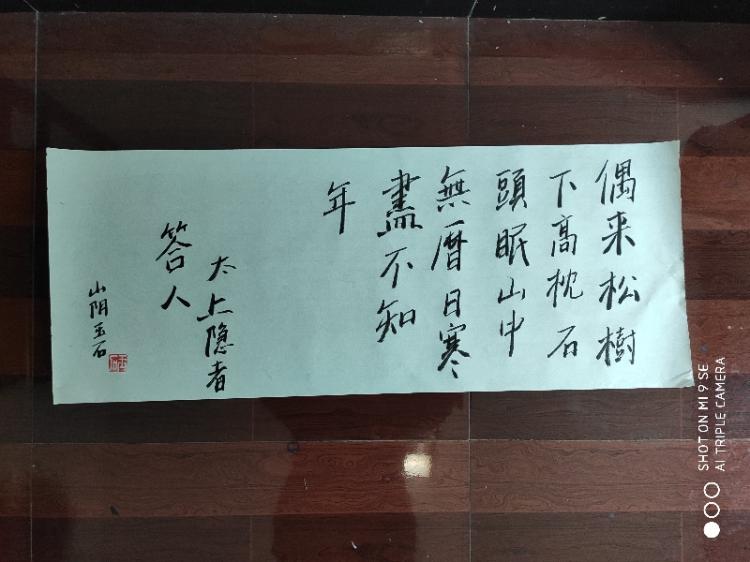 偶来松樹
下高枕石
頭眠山中
無暦日寒
盡不知
年
太上隐者
答人
山阴玉石
SHOT ON MI 9 SE
AI TRIPLE CAMERA